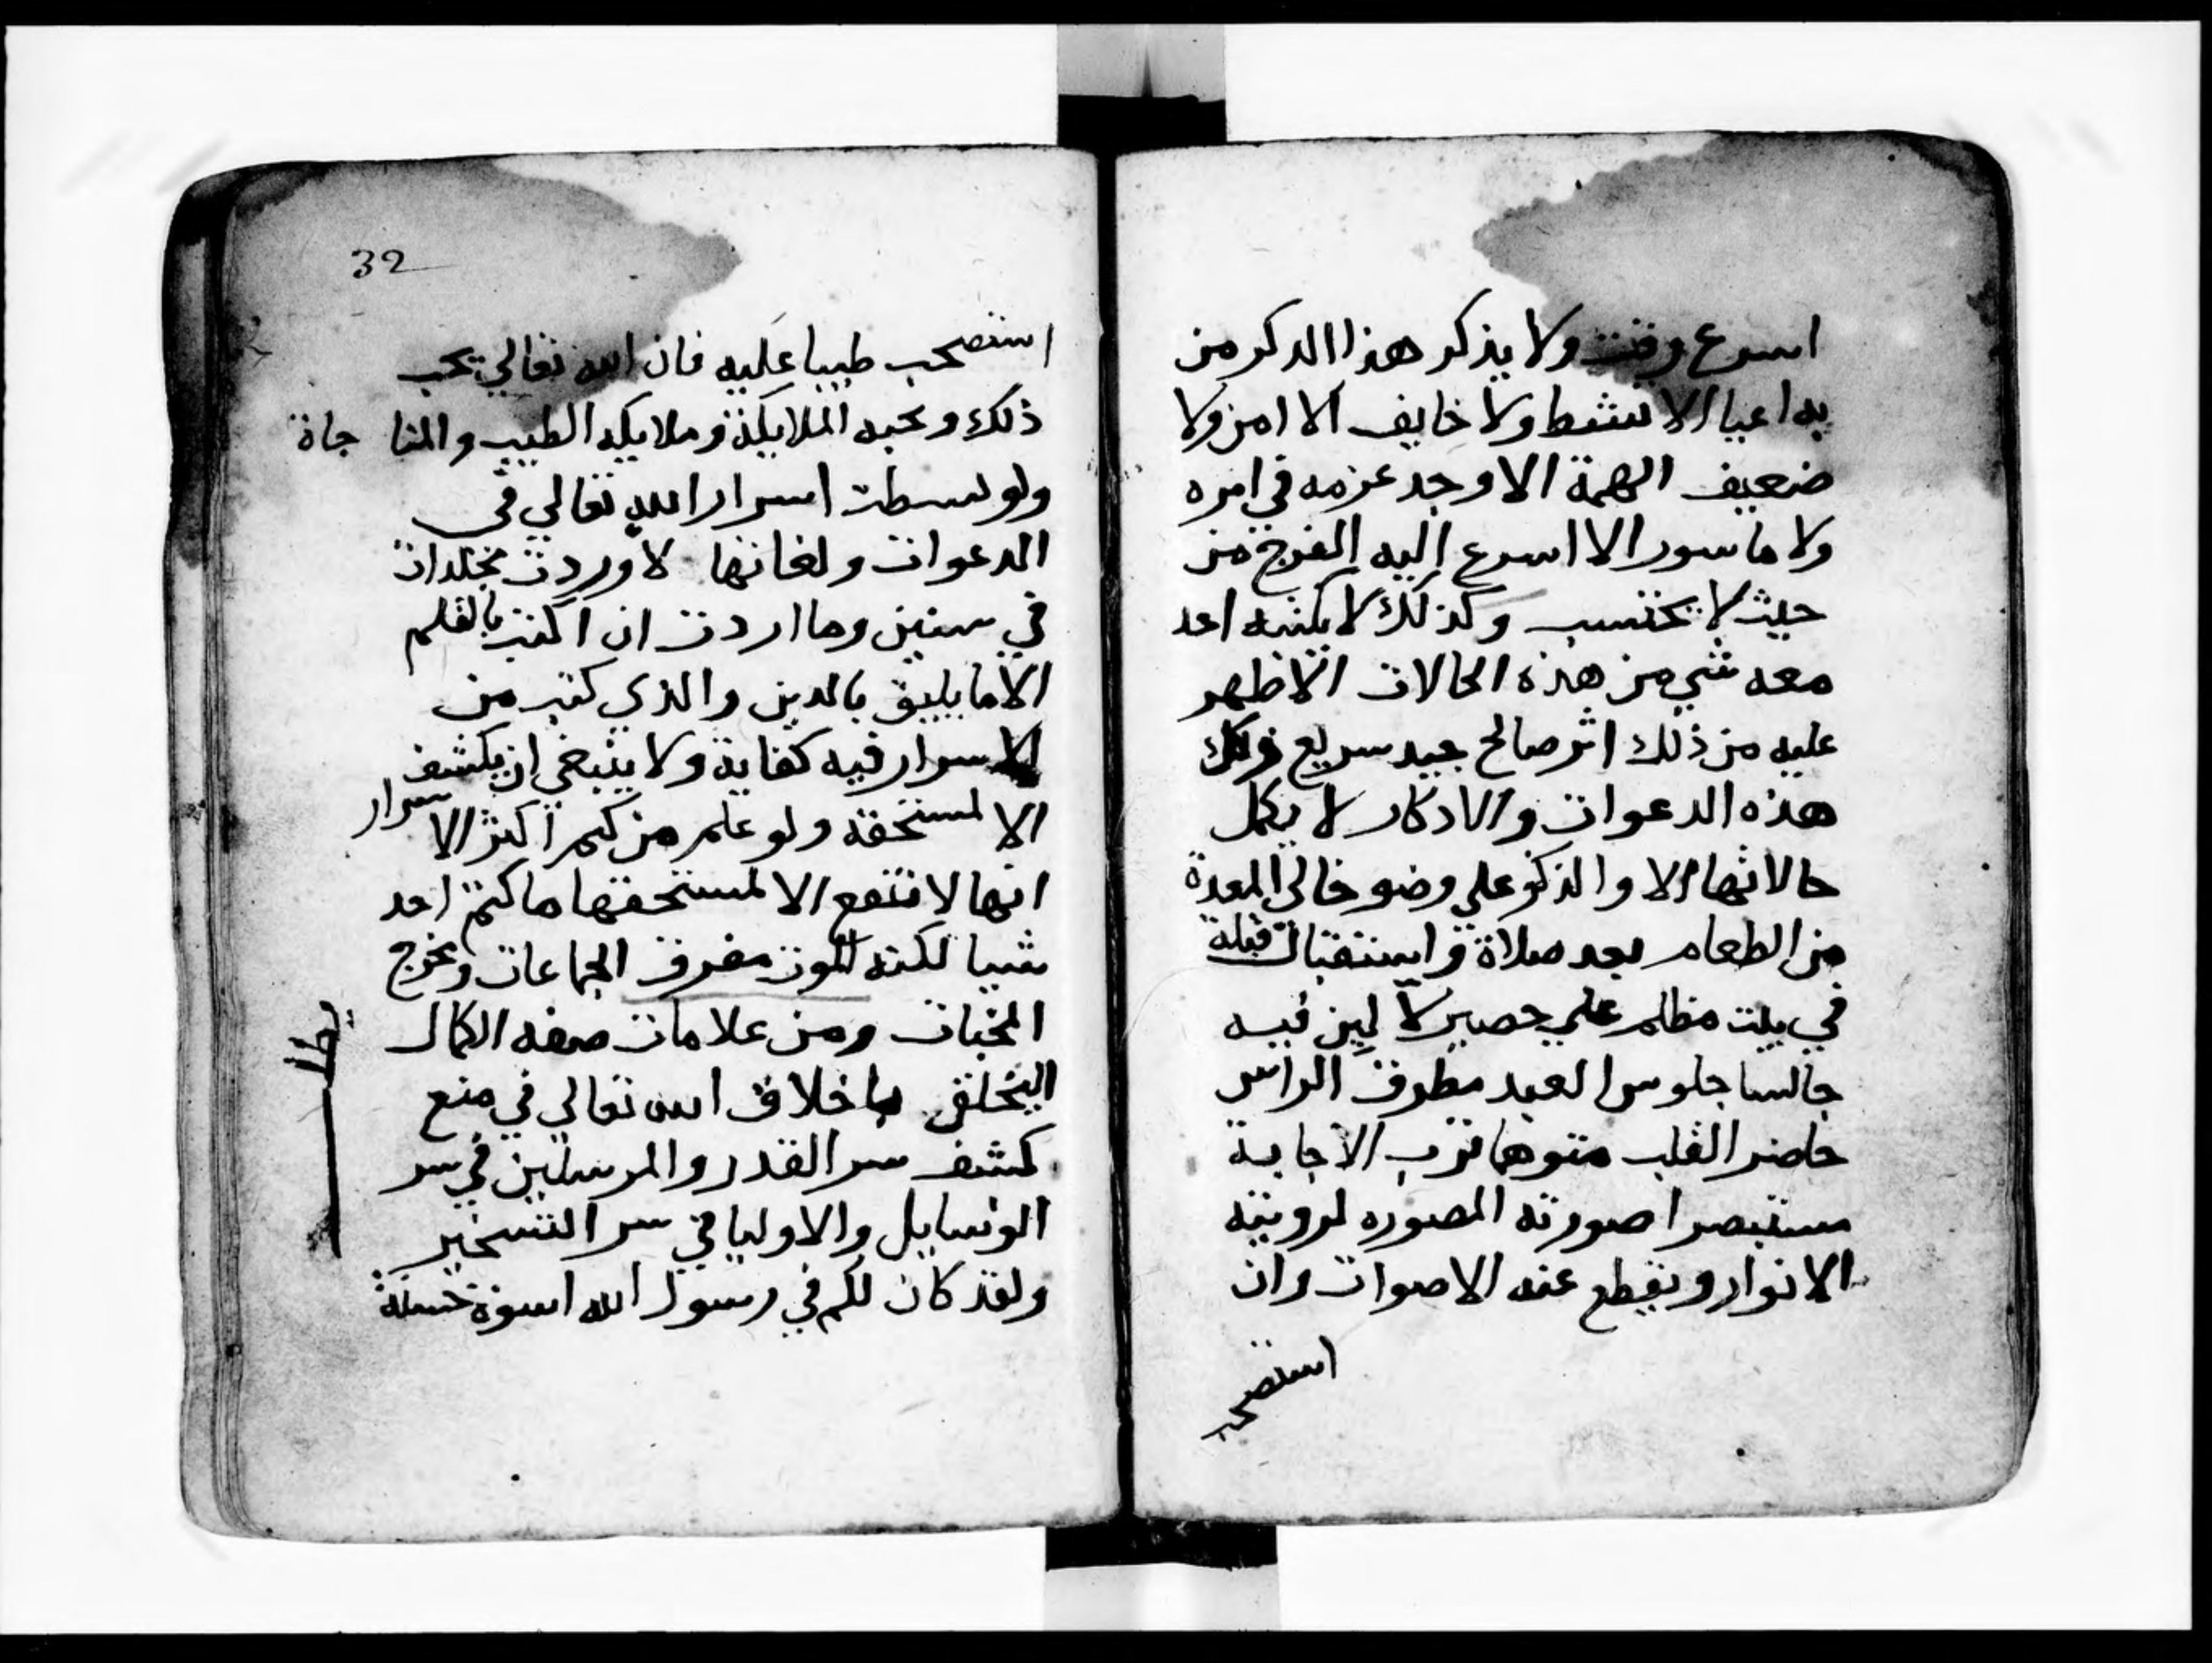 اسرع وقت ولا يذكر هذا الدكر من
به اعيا الا نشط ولا خايف الا امن ولا
ضعيف الهمة الا وجد عزمه في امره
ولا ماسور الا اسرع اليه الفرج من
حيث لا يحتسب وكذلك لا يكتبه احد
معه شي من هذه الحالات الا ظهر
عليه من ذلك اثر صالح جيد سريع وكل
هذه الدعوات والادكار لا يكمل
حالاتها الا والذكر علي وضو خالي المعدة
من الطعام بعد صلاة واستقبال قبلة
في بيت مظلم علي حصير لا لين فيه
جالسا جلوس العبد مطرق الراس
حاضر القلب متوهما قرب الاجابة
مستبصرا صورته المصوره لرويته
الانوار ويقطع عنه الاصوات وان
استصحب
32
استصحب طيبا عليه فان الله تعالي يحب
ذلك وتحبه الملايكة وملايكه الطيب والمناجاة
ولو بسطت اسرار الله تعالي في
الدعوات ولغاتها لاوردت مجلدات
في سنين وما اردت ان اكتب بالقلم
الا ما يليق بالدين والذي كتب من
الاسرار فيه كفاية ولا ينبغي ان يكشف
الا لمستحقه ولو علم من كتم اكثر الاسرار
انها لا تنفع الا لمستحقها ما كتم احد
شيا لكنه الموت مفرق الجماعات ومخرج
المخبات ومن علامات صفه الكمال
التخلق باخلاق الله تعالي في منع
كشف سر القدر والمرسلين في سر
الوسايل والاوليا في سر التسخير
ولقد كان لكم في رسول الله اسوة حسنة